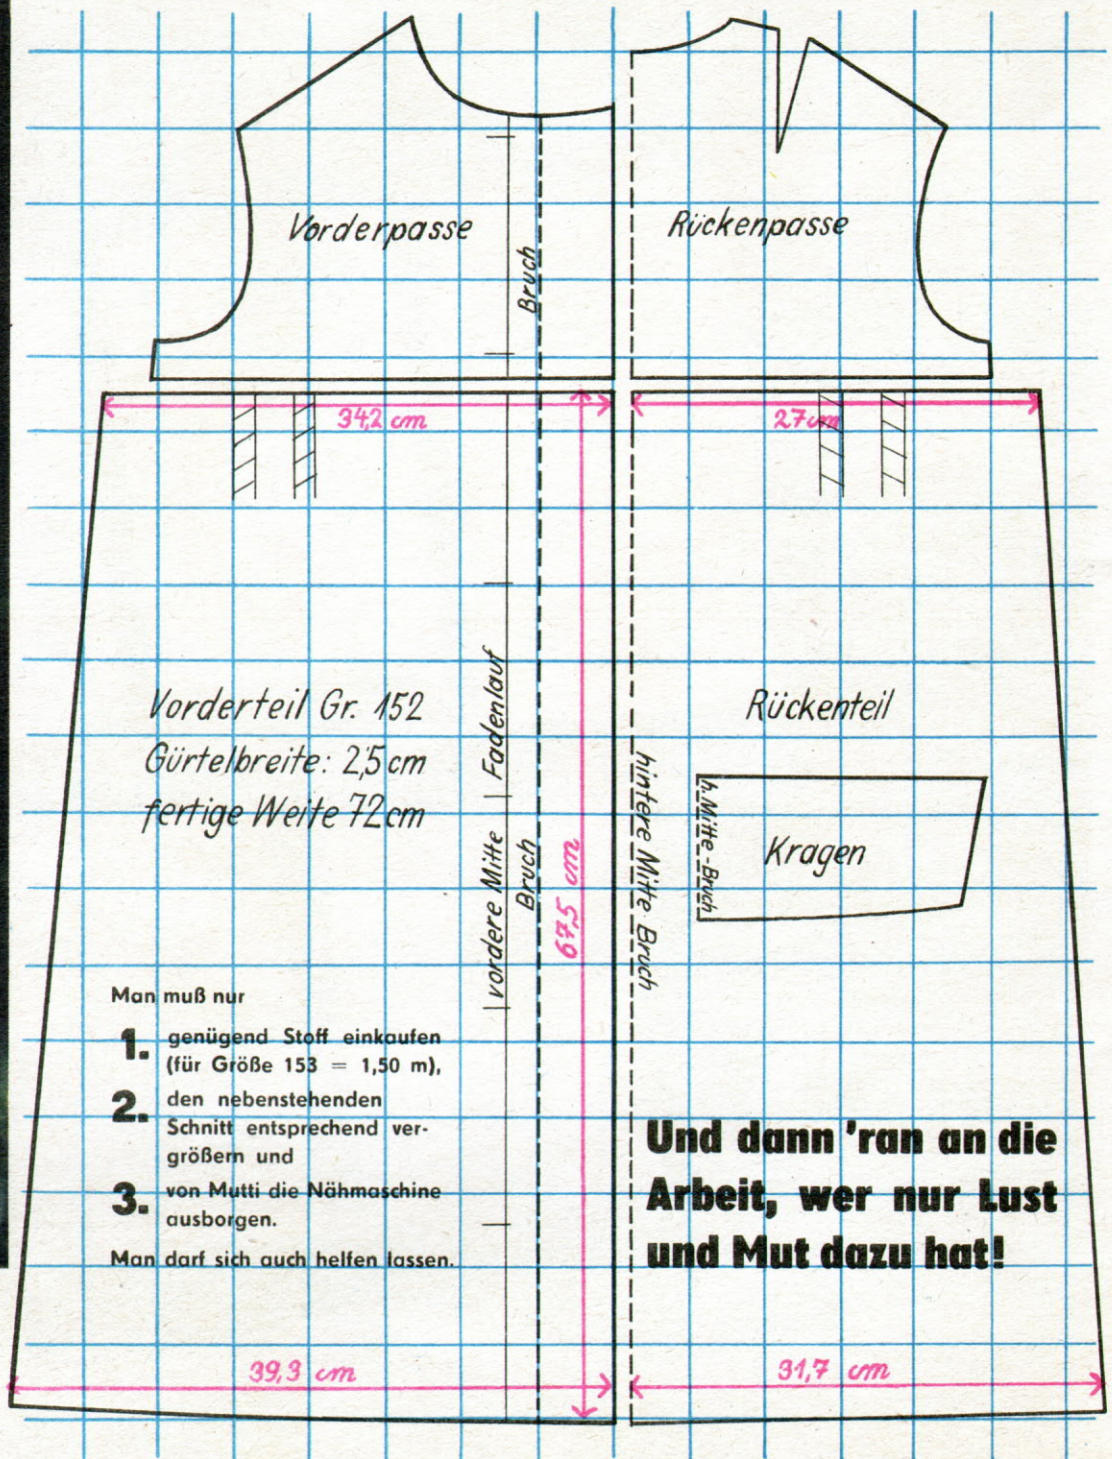 Vorderpasse
Bruch
Rückenpasse
34,2 cm
27 cm
Vorderteil Gr. 152
Gürtelbreite: 2,5 cm
fertige Weite 72 cm
vordere Mitte
Fadenlauf
Bruch
67,5 cm
hintere Mitte Bruch
Rückenteil
h. Mitte-Bruch
Kragen
Man muß nur
1. genügend Stoff einkaufen
(für Größe 153 = 1,50 m),
2. den nebenstehenden
Schnitt entsprechend ver-
größern und
3. von Mutti die Nähmaschine
ausborgen.
Man darf sich auch helfen lassen.
Und dann 'ran an die
Arbeit, wer nur Lust
und Mut dazu hat!
39,3 cm
31,7 cm